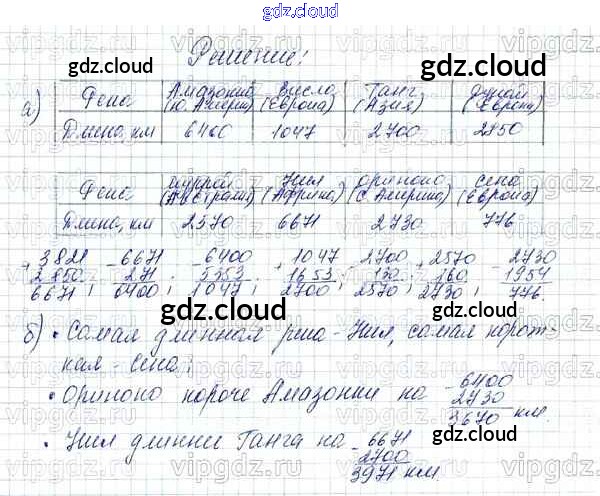 gdz.cloud
Решение!
gdz.cloud gdz.cloud
а) Река Амазонка (Ю. Америка) Висла (Европа) Ганг (Азия) Дунай (Европа)
Длина, км 6400 1047 2700 2850
Река Муррей (Австралия) Нил (Африка) Ориноко (С. Америка) Сена (Европа)
Длина, км 2570 6671 2730 776
+3821 -6671 -6400 +1047 -2700 +2570 -2730
2850 271 5353 1653 130 160 1954
6671; 6400; 1047; 2700; 2570; 2730; 776.
gdz.cloud gdz.cloud
б) • Самая длинная река - Нил, самая корот-
кая - Сена;
• Ориноко короче Амазонки на -6400
2730
3670 км.
gdz.cloud gdz.cloud
• Нил длинне Ганга на -6671
2700
3971 км.